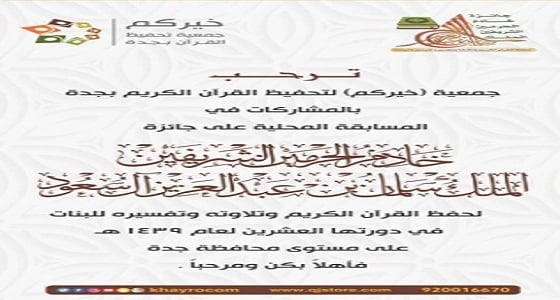 خيركم
جمعية تحفيظ
القرآن بجدة
ترحب
جمعية (خيركم) لتحفيظ القرآن الكريم بجدة
بالمشاركات في
المسابقة المحلية على جائزة
خادم الحرمين الشريفين
الملك سلمان بن عبدالعزيز آل سعود
لحفظ القرآن الكريم وتلاوته وتفسيره للبنات
في دورتها العشرين لعام ١٤٣٩ هـ
على مستوى محافظة جدة
فأهلاً بكن ومرحباً .
khayrocom www.qjstore.com 920016670